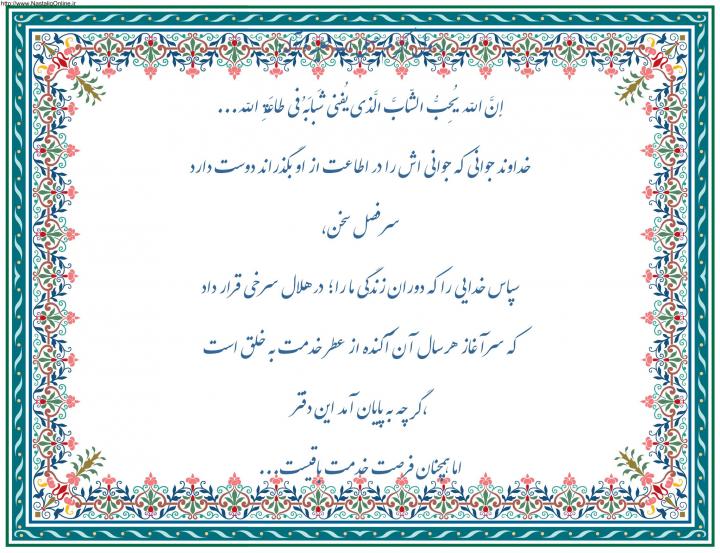 http://www.NastaliqOnline.ir
إنَّ الله يُحِبُّ الشّابَّ الَّذی يُفْنی شَبابَهُ فی طاعَةِ الله...
خداوند جوانی که جوانی اش را در اطاعت از او بگذراند دوست دارد
سرفصل سخن،
سپاس خدایی را که دوران زندگی ما را؛ در هلال سرخی قرار داد
که سرآغاز هر سال آن آکنده از عطر خدمت به خلق است
،گر چه به پایان آمد این دفتر
اما همچنان فرصت خدمت باقیست...